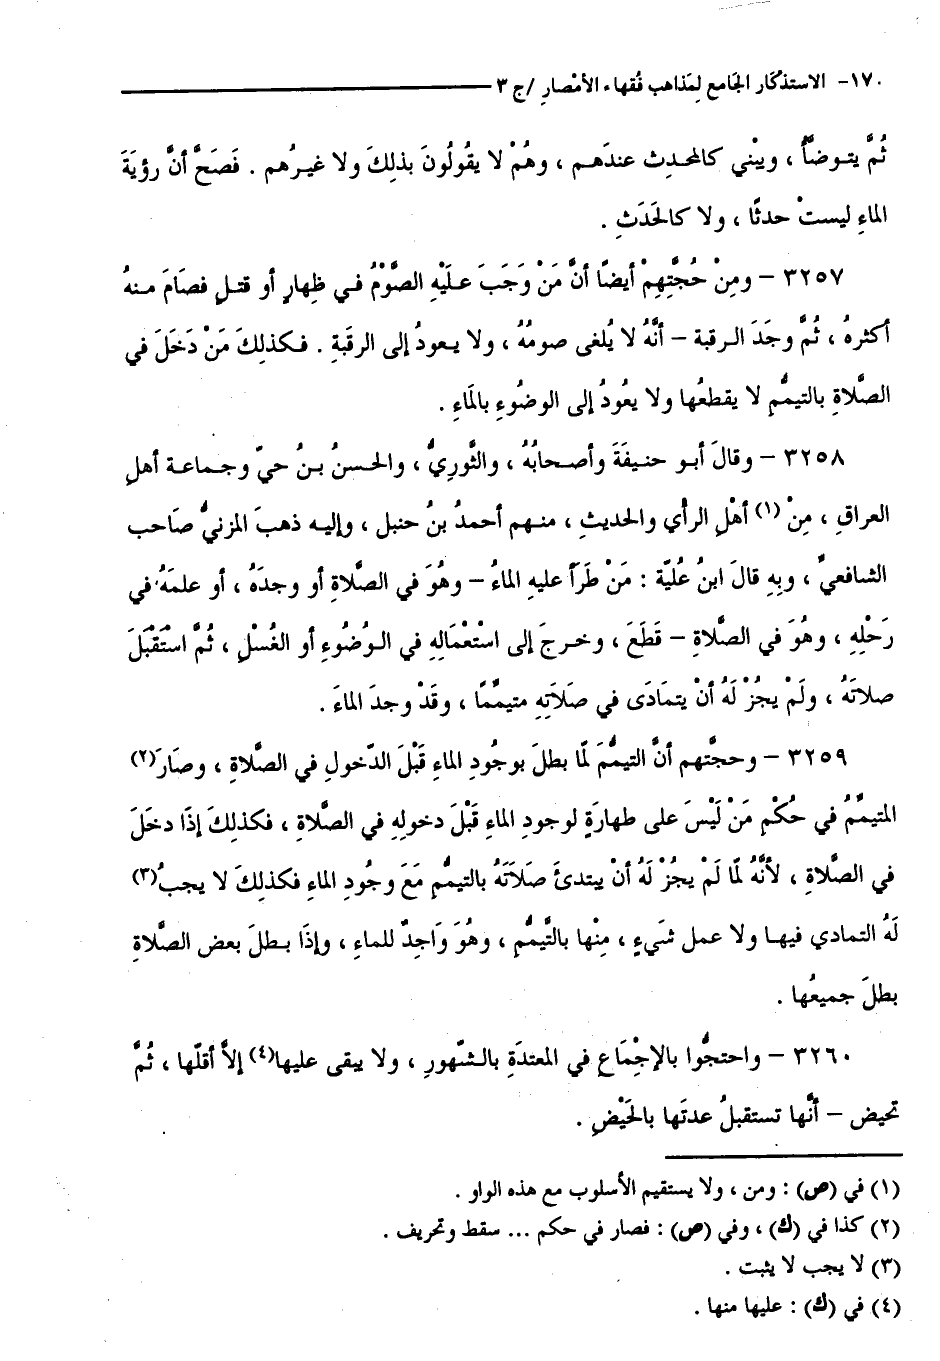 ١٧٠- الاستذْكَار الجَامع لِمَذاهب فُقهاء الأمْصارِ /ج ٣
ثُمَّ يتوضَّأُ ، ويبْني كالمحدِث عندَهم ، وهُمْ لا يقُولُونَ بذلِكَ ولا غيرُهم . فَصَحَّ أنَّ رؤيَةَ
الماءِ ليستْ حدثًا ، ولا كالحَدَثِ .
٣٢٥٧ – ومِنْ حُجَّتِهِمْ أيضًا أنَّ مَنْ وَجَبَ عليْهِ الصَّوْمُ في ظِهارٍ أو قتلٍ فصَامَ منهُ
أكثرهُ ، ثُمَّ وجَدَ الرقبة – أنَّهُ لا يُلغى صومُهُ ، ولا يعودُ إلى الرقَبةِ . فكذلِكَ مَنْ دَخَلَ في
الصَّلاةِ بالتيمُّمِ لا يقطعُها ولا يعُودُ إلى الوضُوءِ بالمَاءِ .
٣٢٥٨ – وقالَ أبو حنيفَةَ وأصحابُهُ ، والثَّوريُّ ، والحسنُ بنُ حيّ وجماعة أهلِ
العراقِ ، مِنْ (١) أهْلِ الرأي والحديثِ ، منهم أحمدُ بنُ حنبل ، وإليه ذهبَ المزنيُّ صَاحب
الشافعيِّ ، وبِهِ قالَ ابنُ عُليَّة : مَنْ طَرَأَ عليهِ الماءُ – وهُوَ في الصَّلاةِ أو وجدَهُ ، أو علمَهُ في
رَحْلِهِ ، وهُوَ في الصَّلاةِ – قَطَعَ ، وخرجَ إلى اسْتِعْمَالِهِ في الوُضُوءِ أو الغُسْلِ ، ثُمَّ اسْتَقْبَلَ
صلاتَهُ ، ولَمْ يجُزْ لَهُ أنْ يتمَادَى في صَلَاتِهِ متيمِّمًا ، وقَدْ وجدَ الماءَ .
٣٢٥٩ – وحجَّتهم أنَّ التيمُّمَ لَمّا بطلَ بوجُودِ الماءِ قَبْلَ الدّخولِ في الصَّلاةِ ، وصَارَ(٢)
المتيمِّمُ في حُكْمِ مَنْ لَيْسَ على طهارَةٍ لوجودِ الماءِ قَبْلَ دخولِهِ في الصَّلاةِ ، فكذلِكَ إذَا دخلَ
في الصَّلاةِ ، لأنَّهُ لَمّا لَمْ يجُزْ لَهُ أنْ يبتدئَ صَلَاتَهُ بالتيمُّمِ مَعَ وجُودِ الماءِ فكذلِكَ لا يجبُ(٣)
لَهُ التمادي فيها ولا عمل شَيءٍ ، مِنْها بالتَّيمُّمِ ، وهُوَ وَاجِدٌ للماءِ ، وإذَا بطلَ بعض الصَّلاةِ
بطلَ جميعُها .
٣٢٦٠ – واحتجُّوا بالإجْمَاعِ في المعتدَّةِ بالشّهورِ ، ولا يبقى عليها(٤) إلاَّ أقلّها ، ثُمَّ
تحيض – أنَّها تستقبلُ عدتَها بالحَيْضِ .
(١) في (ص) : ومن ، ولا يستقيم الأسلوب مع هذه الواو .
(٢) كذا في (ك) ، وفي (ص) : فصار في حكم ... سقط وتحريف .
(٣) لا يجب لا يثبت .
(٤) في (ك) : عليها منها .